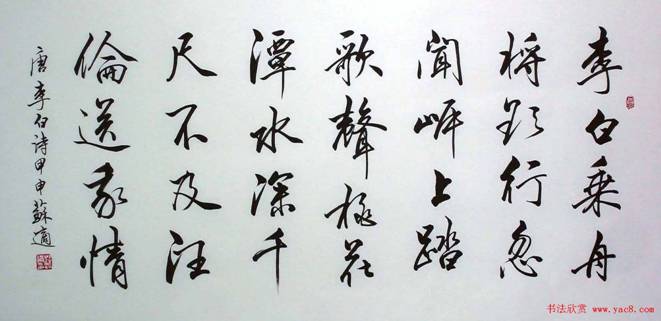 李白乘舟
将欲行忽
聞岸上踏
歌聲桃花
潭水深千
尺不及汪
倫送我情
唐李白诗甲申蘇適
书法欣赏 www.yac8.com